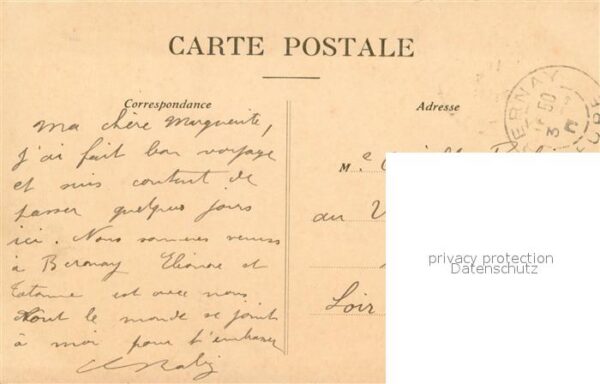 CARTE POSTALE
Correspondance
Adresse
BERNAY
Ma chère Marguerite,
j'ai fait bon voyage
et suis content de
passer quelques jours
ici. Nous sommes venus
à Bernay Eléonore et
est avec nous
tout le monde se joint
à moi pour t'embrasser
M
au V
Loir
privacy protection
Datenschutz